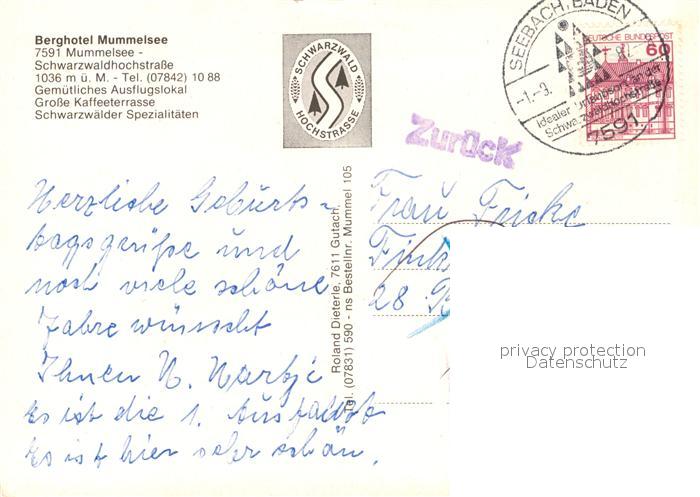 Berghotel Mummelsee
7591 Mummelsee -
Schwarzwaldhochstraße
1036 m ü. M. - Tel. (07842) 10 88
Gemütliches Ausflugslokal
Große Kaffeeterrasse
Schwarzwälder Spezialitäten
SCHWARZWALD
HOCHSTRASSE
SEEBACH, BADEN
-1.-9.
Idealer
an der
Schwarzwaldhochstraße
7591
DEUTSCHE BUNDESPOST
60
Zurück
Herzliche Geburts-
tagsgrüße und
noch viele schöne
Jahre wünscht
Ihnen N.
Es ist die 1.
Es ist hier sehr schön.
Roland Dieterle, 7611 Gutach,
Tel. (07831) 590 - ns Bestellnr. Mummel 105
Frau Fricke
28
privacy protection
Datenschutz